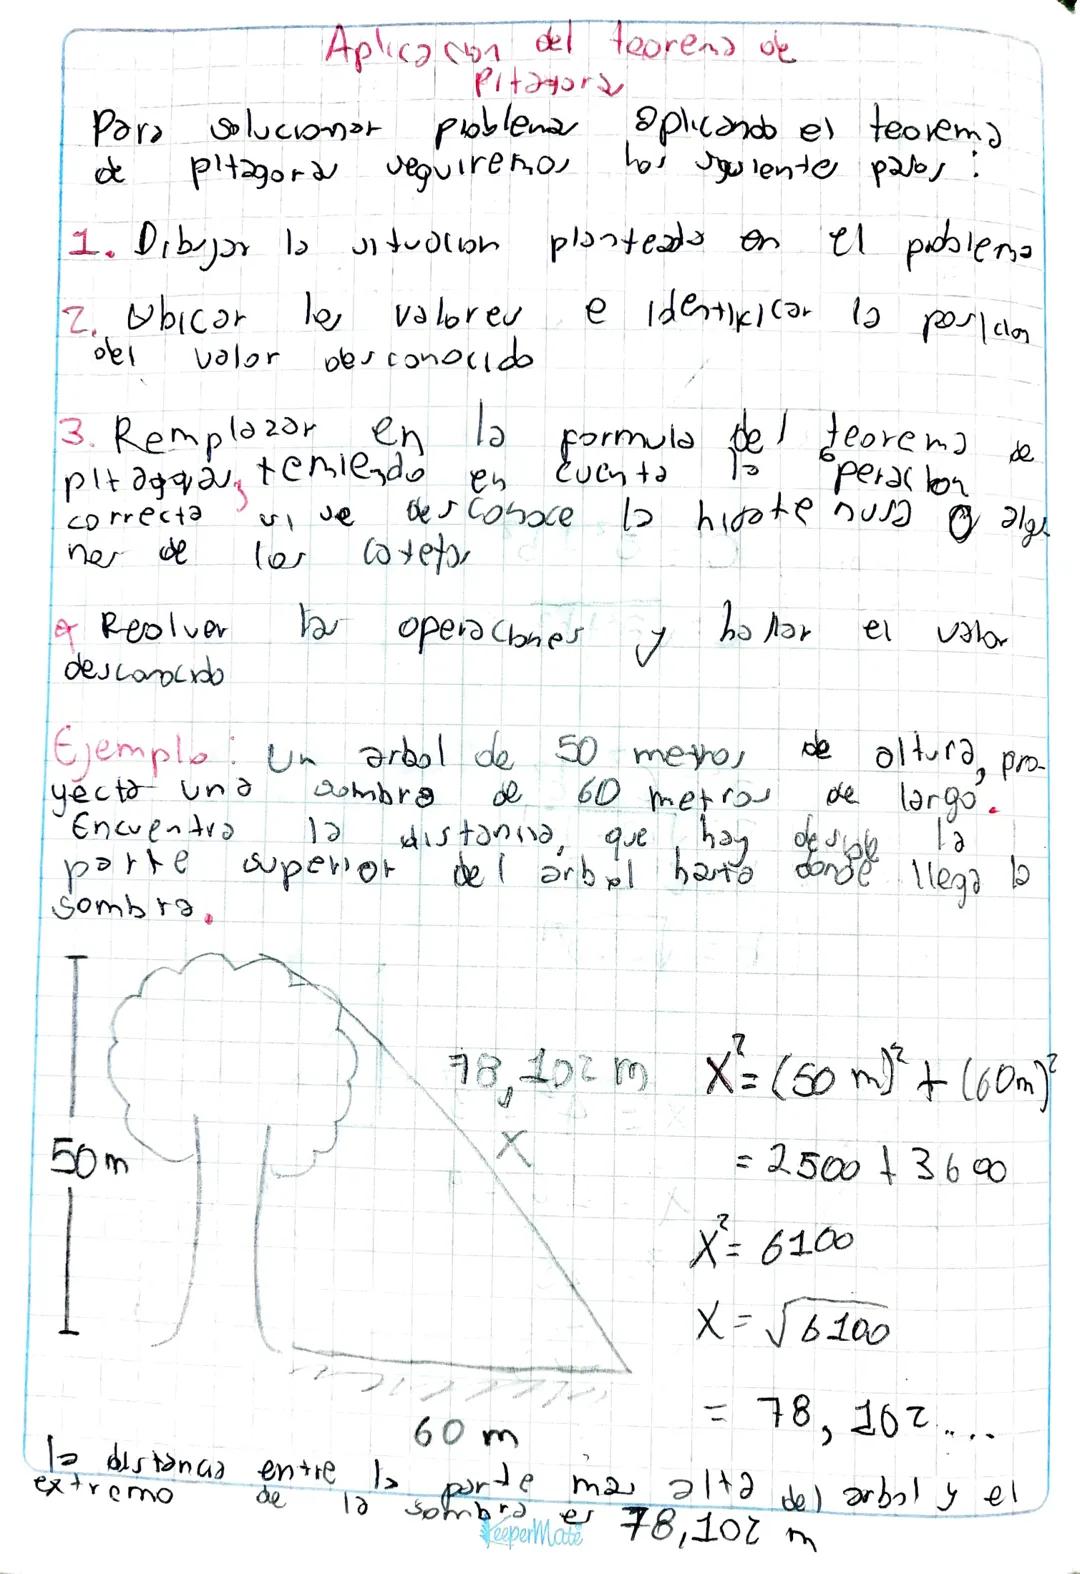 Aplicacion del teorema de
Pitagora
Para solucionar problema aplicando el teorema
de pitagora seguiremos los siguiente pasos :
1. Dibujar la situacion planteada en el problema
2. Ubicar los valores e identificar la posicion
del valor desconocido
3. Remplazar en la formula del teorema de
pitagora, teniendo en cuenta la operacion
correcta si se desconoce la hipotenusa o algu
nos de los catetos
4 Resolver las operaciones y hallar el valor
desconocido
Ejemplo: Un arbol de 50 metros de altura, pro-
yecta una sombra de 60 metros de largo.
Encuentra la distancia, que hay desde la
parte superior del arbol hasta donde llega la
sombra.
78,102 m
X
50 m
60 m
X²= (50 m)² + (60m)²
= 2500 + 3600
X²= 6100
X = √6100
= 78, 102....
la distancia entre la parte mas alta del arbol y el
extremo de la sombra es 78,102 m
KeeperMate